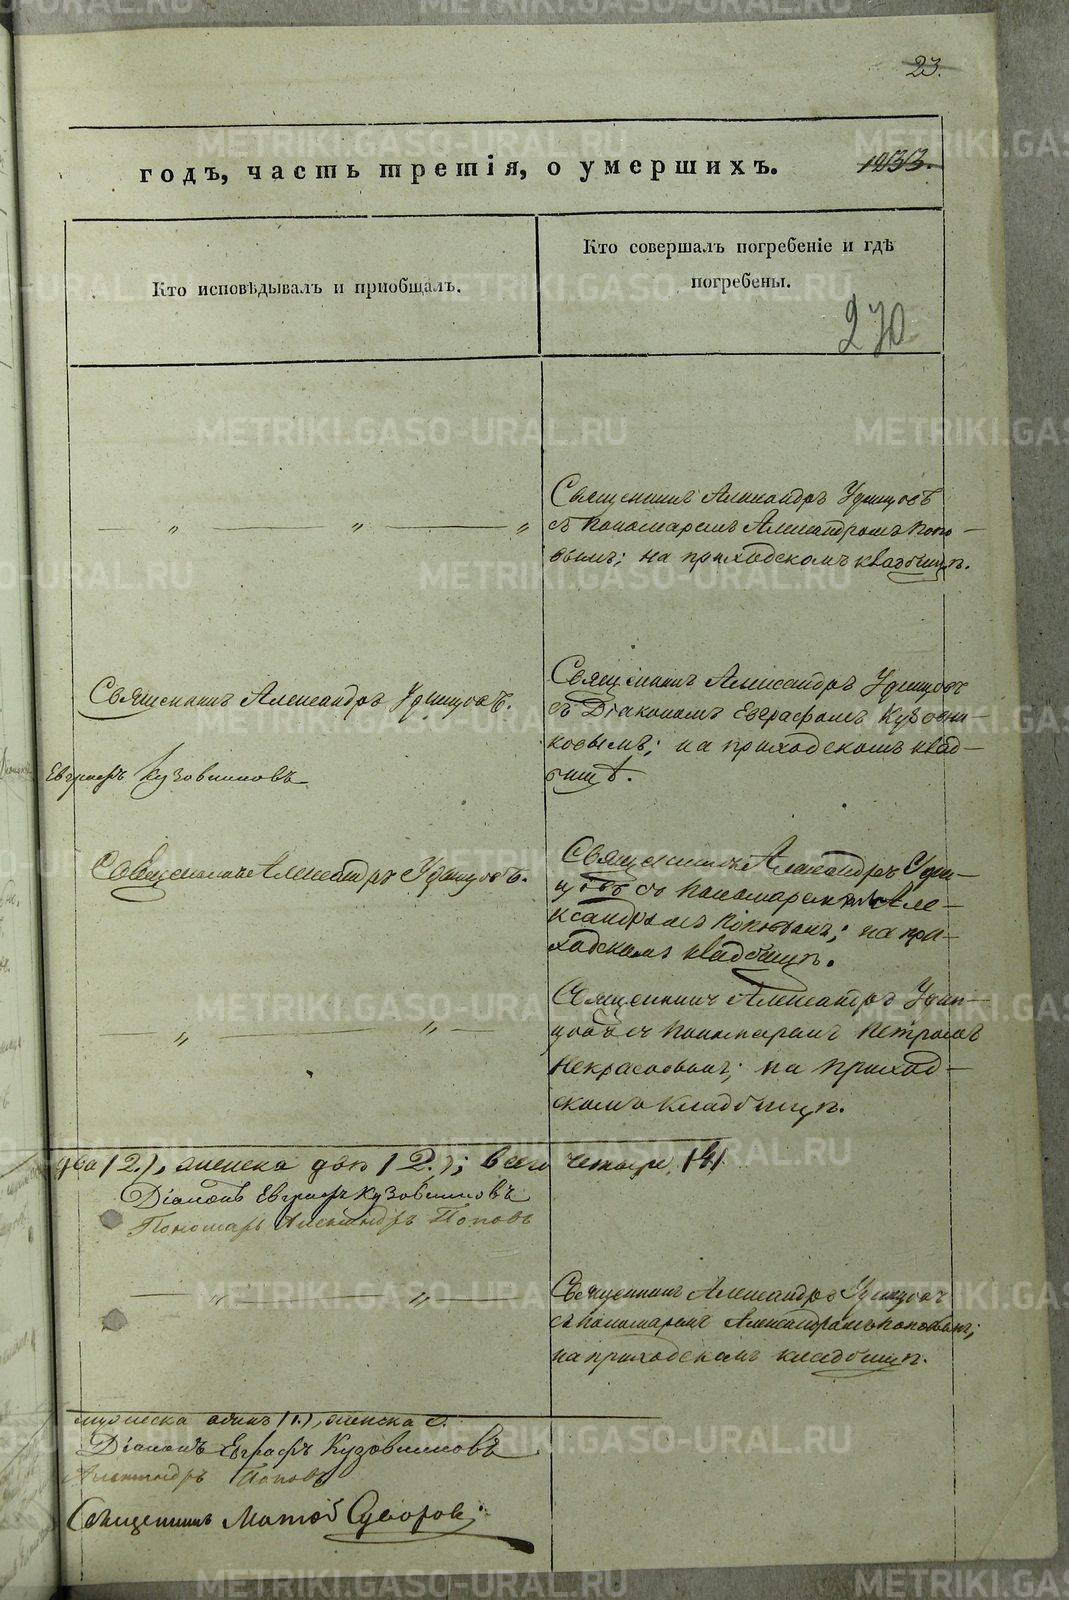 23.
годъ, часть третія, о умершихъ.
Кто исповѣдывалъ и пріобщалъ.
Кто совершалъ погребеніе и гдѣ
погребены.
270
Священникъ Александръ Удинцовъ
съ пономаремъ Александромъ Попо-
вымъ; на приходскомъ кладбищѣ.
Священникъ Александръ Удинцовъ.
Евграфъ Кузовниковъ
Священникъ Александръ Удинцовъ
съ Діакономъ Евграфомъ Кузовни-
ковымъ; на приходскомъ клад-
бищѣ.
Священникъ Александръ Удинцовъ.
Священникъ Александръ Удин-
цовъ съ пономаремъ Але-
ксандромъ Поповымъ; на при-
ходскомъ кладбищѣ.
Священникъ Александръ Удин-
цовъ съ пономаремъ Петромъ
Некрасовымъ; на приход-
скомъ кладбищѣ.
два (2.), женска два (2.); всего четыре (4)
Діаконъ Евграфъ Кузовниковъ
Пономарь Александръ Поповъ
Священникъ Александръ Удинцовъ
съ пономаремъ Александромъ Поповымъ;
на приходскомъ кладбищѣ.
мужеска одинъ (1.), женска 0.
Діаконъ Евграфъ Кузовниковъ
Александръ Поповъ
Священникъ Матѳей Суворовъ
METRIKI.GASO-URAL.RU